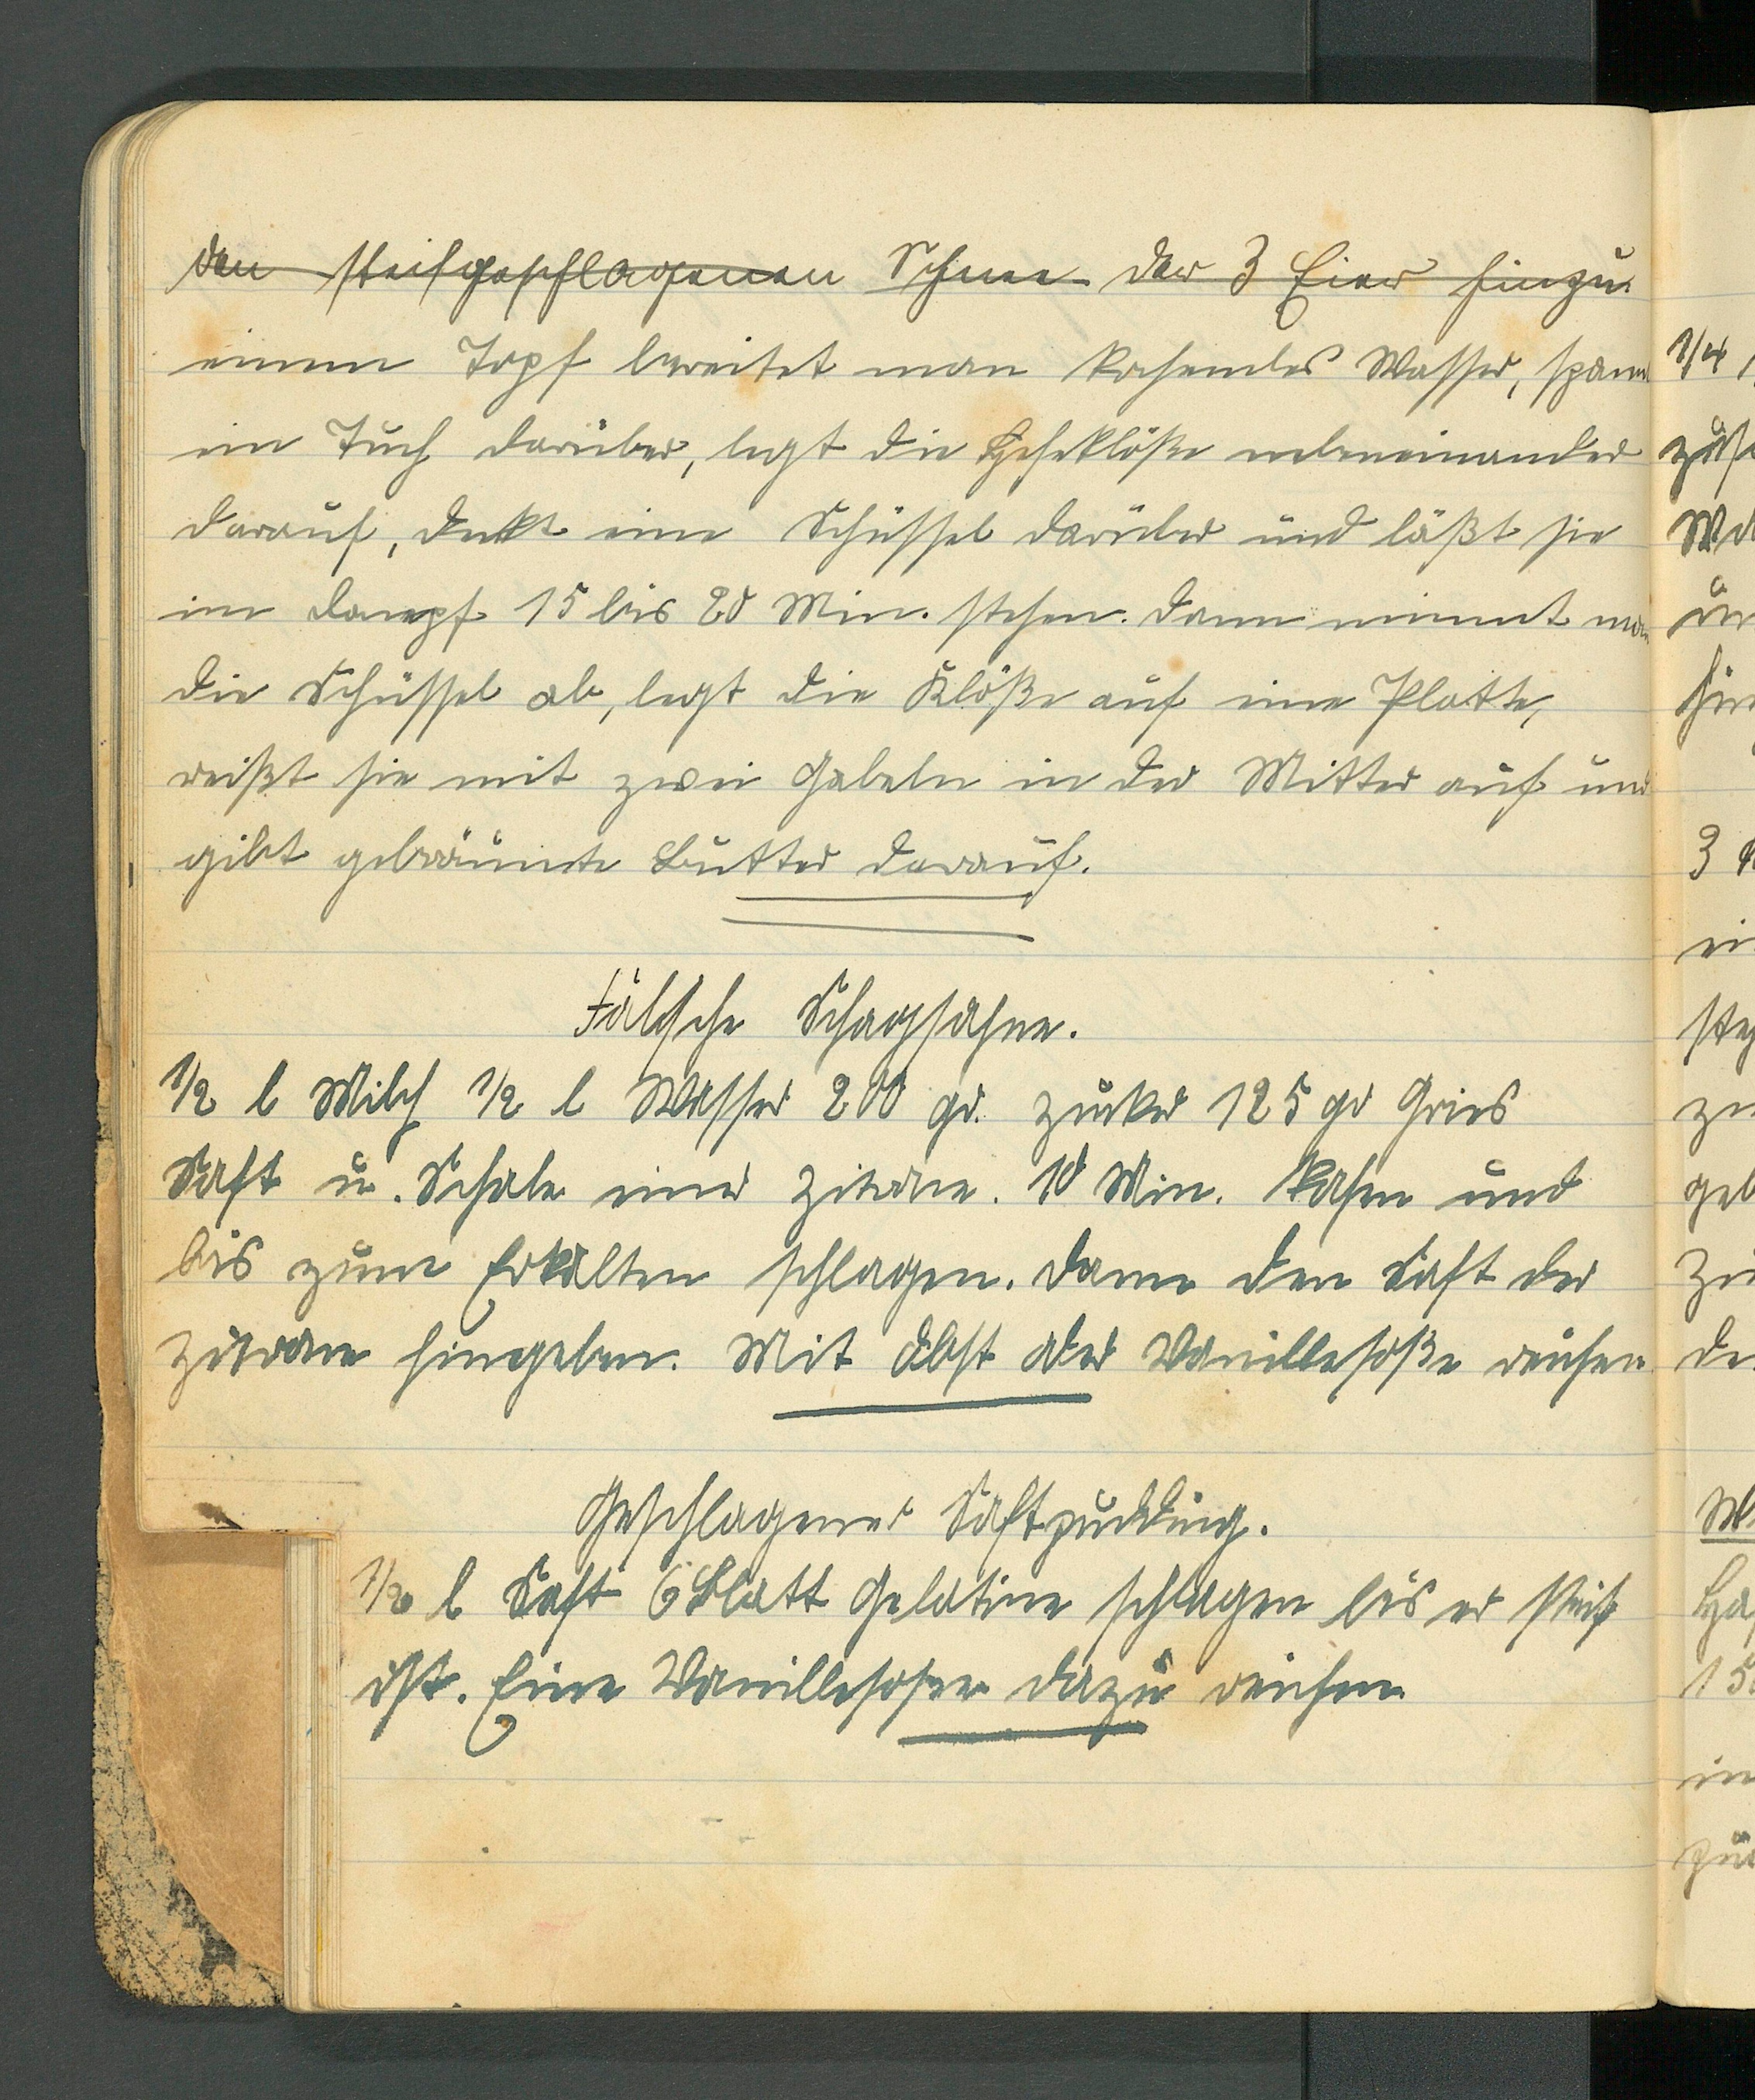 den steifgeschlagenen Schnee der 3 Eier hinzu.
einem Topf bereitet man kochendes Wasser, spann
ein Tuch darüber, legt die Hefeklöße nebeneinander
darauf, deckt eine Schüssel darüber und läßt sie
im Dampf 15 bis 20 Min. stehen. Dann nimmt man
die Schüssel ab, legt die Klöße auf eine Platte,
reißt sie mit zwei Gabeln in der Mitte auf und
gibt gebräunte Butter darauf.
Fälsche Schagsahne.
1/2 l Milch 1/2 l Wasser 200 gr. Zucker 125 gr Gries
Saft u. Schale einer Zitrone. 10 Min. kochen und
bis zum Erkalten schlagen. Dann den Saft der
Zitrone hingeben. Mit Obst oder Vanillesoße reichen
Geschlagener Saftpudding.
1/2 l Saft 6 Blatt Gelatine schlagen bis er steif
ist. Eine Vanillesoße dazu reichen.
1/4
3
15